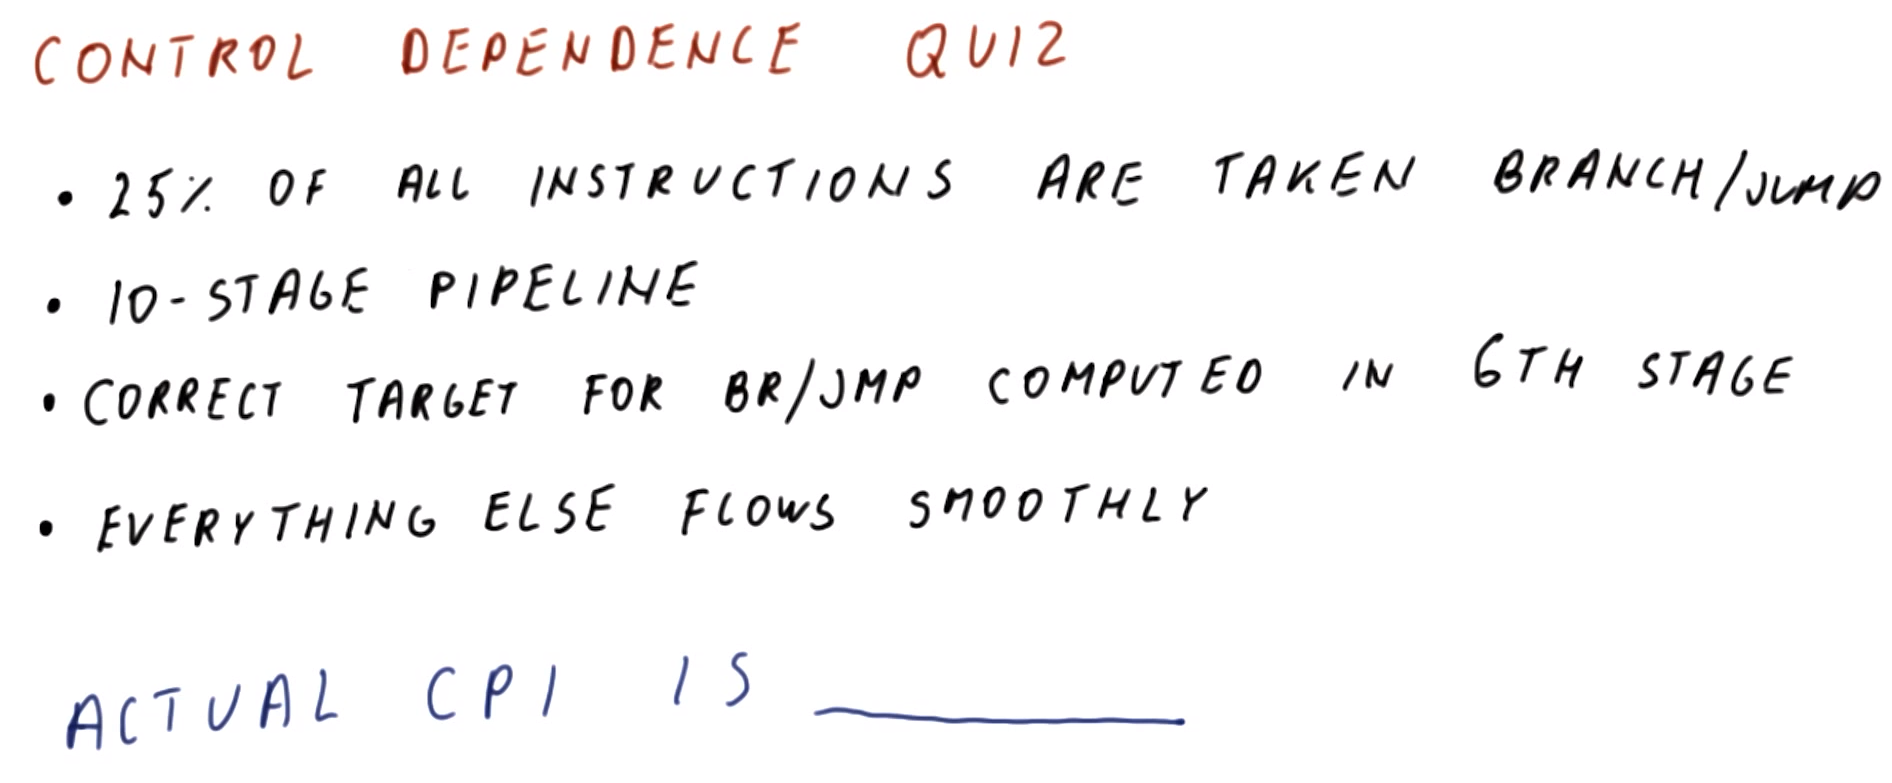 CONTROL DEPENDENCE QUIZ
• 25% OF ALL INSTRUCTIONS ARE TAKEN BRANCH/JUMP
• 10-STAGE PIPELINE
• CORRECT TARGET FOR BR/JMP COMPUTED IN 6TH STAGE
• EVERYTHING ELSE FLOWS SMOOTHLY
ACTUAL CPI IS ________